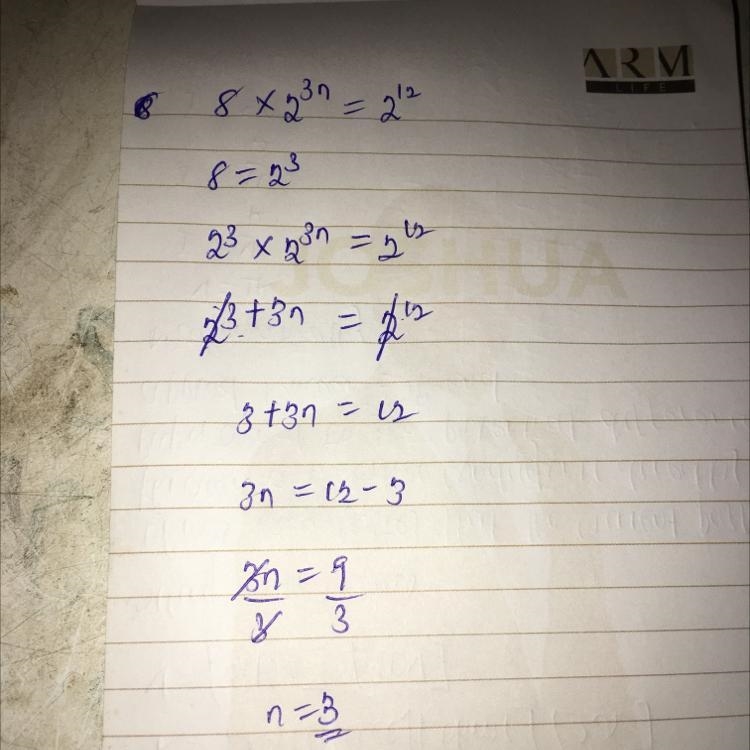 ARM
LIFE
8 × 2³ⁿ = 2¹²
8 = 2³
2³ × 2³ⁿ = 2¹²
2³ + 3n = 2¹²
3 + 3n = 12
3n = 12 - 3
3n/3 = 9/3
n = 3
JOSHUA